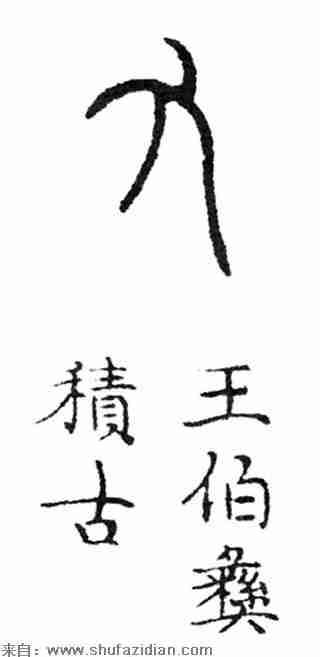 王伯彝
積古
来自：www.shufazidian.com